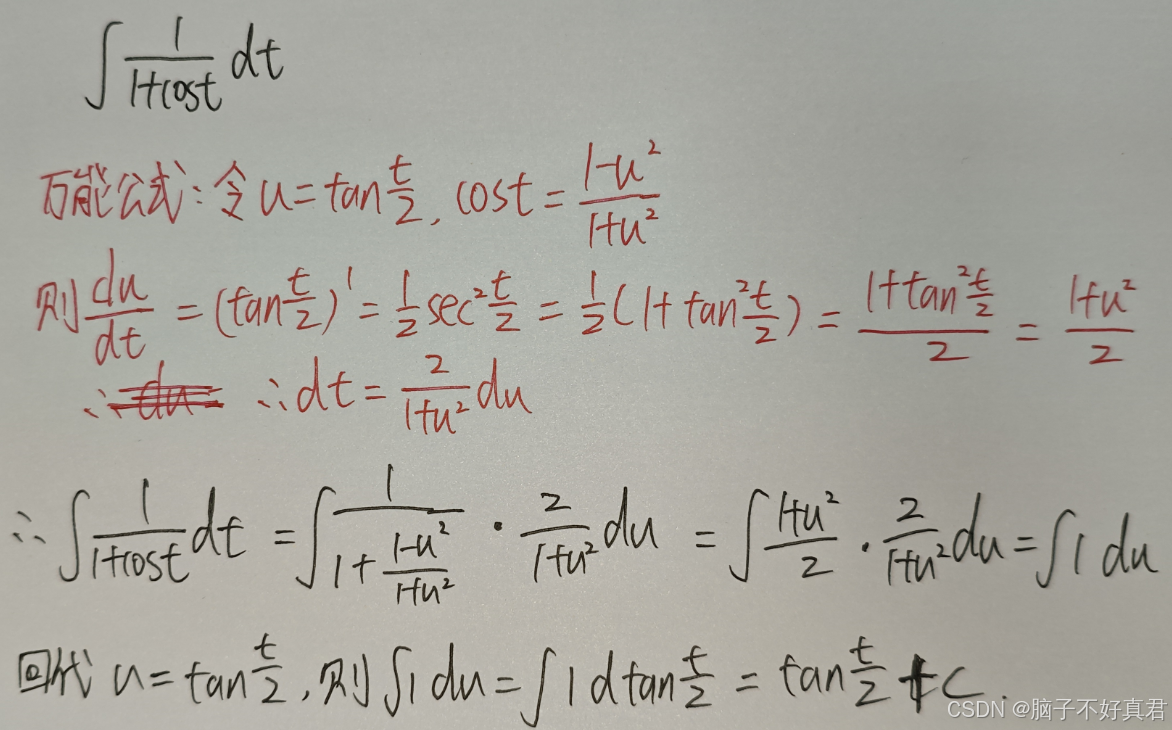 ∫ 1/(1+cost) dt
万能公式:令 u=tan t/2, cost = (1-u²)/(1+u²)
则 du/dt = (tan t/2)' = 1/2 sec² t/2 = 1/2 (1+tan² t/2) = (1+tan² t/2)/2 = (1+u²)/2
∴ du ∴ dt = 2/(1+u²) du
∴ ∫ 1/(1+cost) dt = ∫ 1/(1+(1-u²)/(1+u²)) · 2/(1+u²) du = ∫ (1+u²)/2 · 2/(1+u²) du = ∫ 1 du
回代 u=tan t/2, 则 ∫ 1 du = ∫ 1 d tan t/2 = tan t/2 + C.
CSDN @脑子不好真君